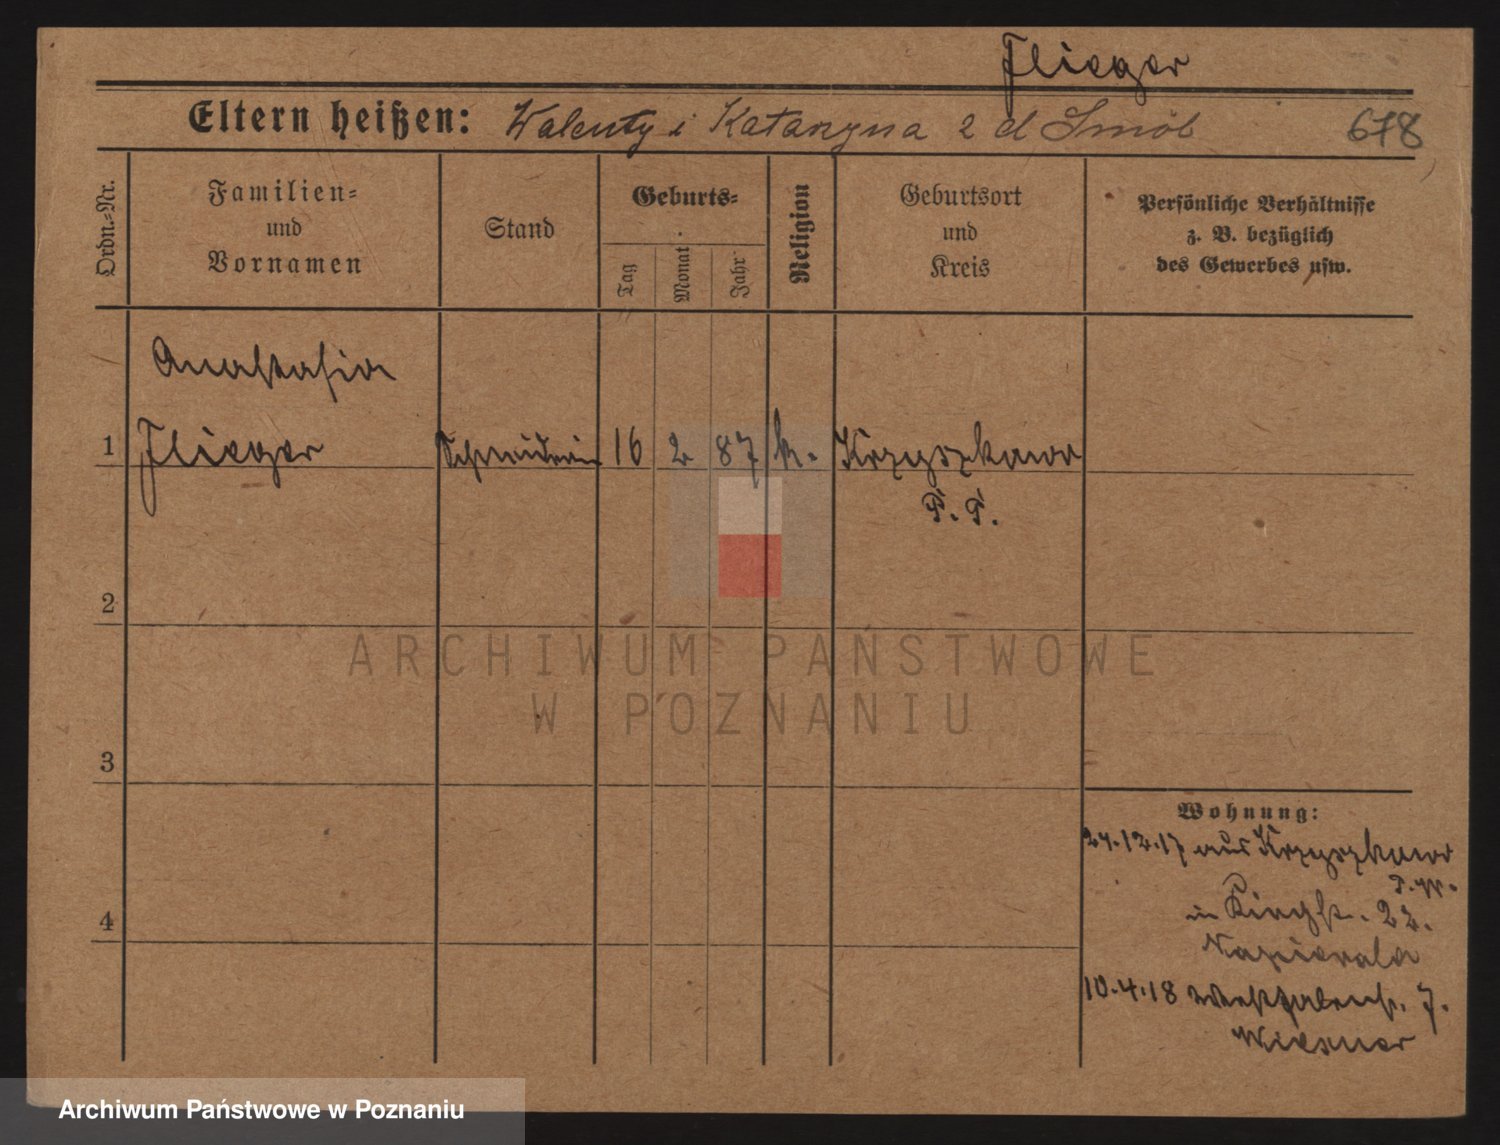 Flieger
Eltern heißen: Walenty i Katarzyna z d Smól
678
Ordn.-Nr.
Familien-
und
Vornamen
Stand
Geburts-
Tag
Monat
Jahr
Religion
Geburtsort
und
Kreis
Persönliche Verhältnisse
z. B. bezüglich
des Gewerbes usw.
Anastasia
1 Flieger Schneiderin 16 2 87 k.
2
3
4
Wohnung:
aus
in 22.
10.4.18 7.
Wiesner
ARCHIWUM PAŃSTWOWE
W POZNANIU
Archiwum Państwowe w Poznaniu